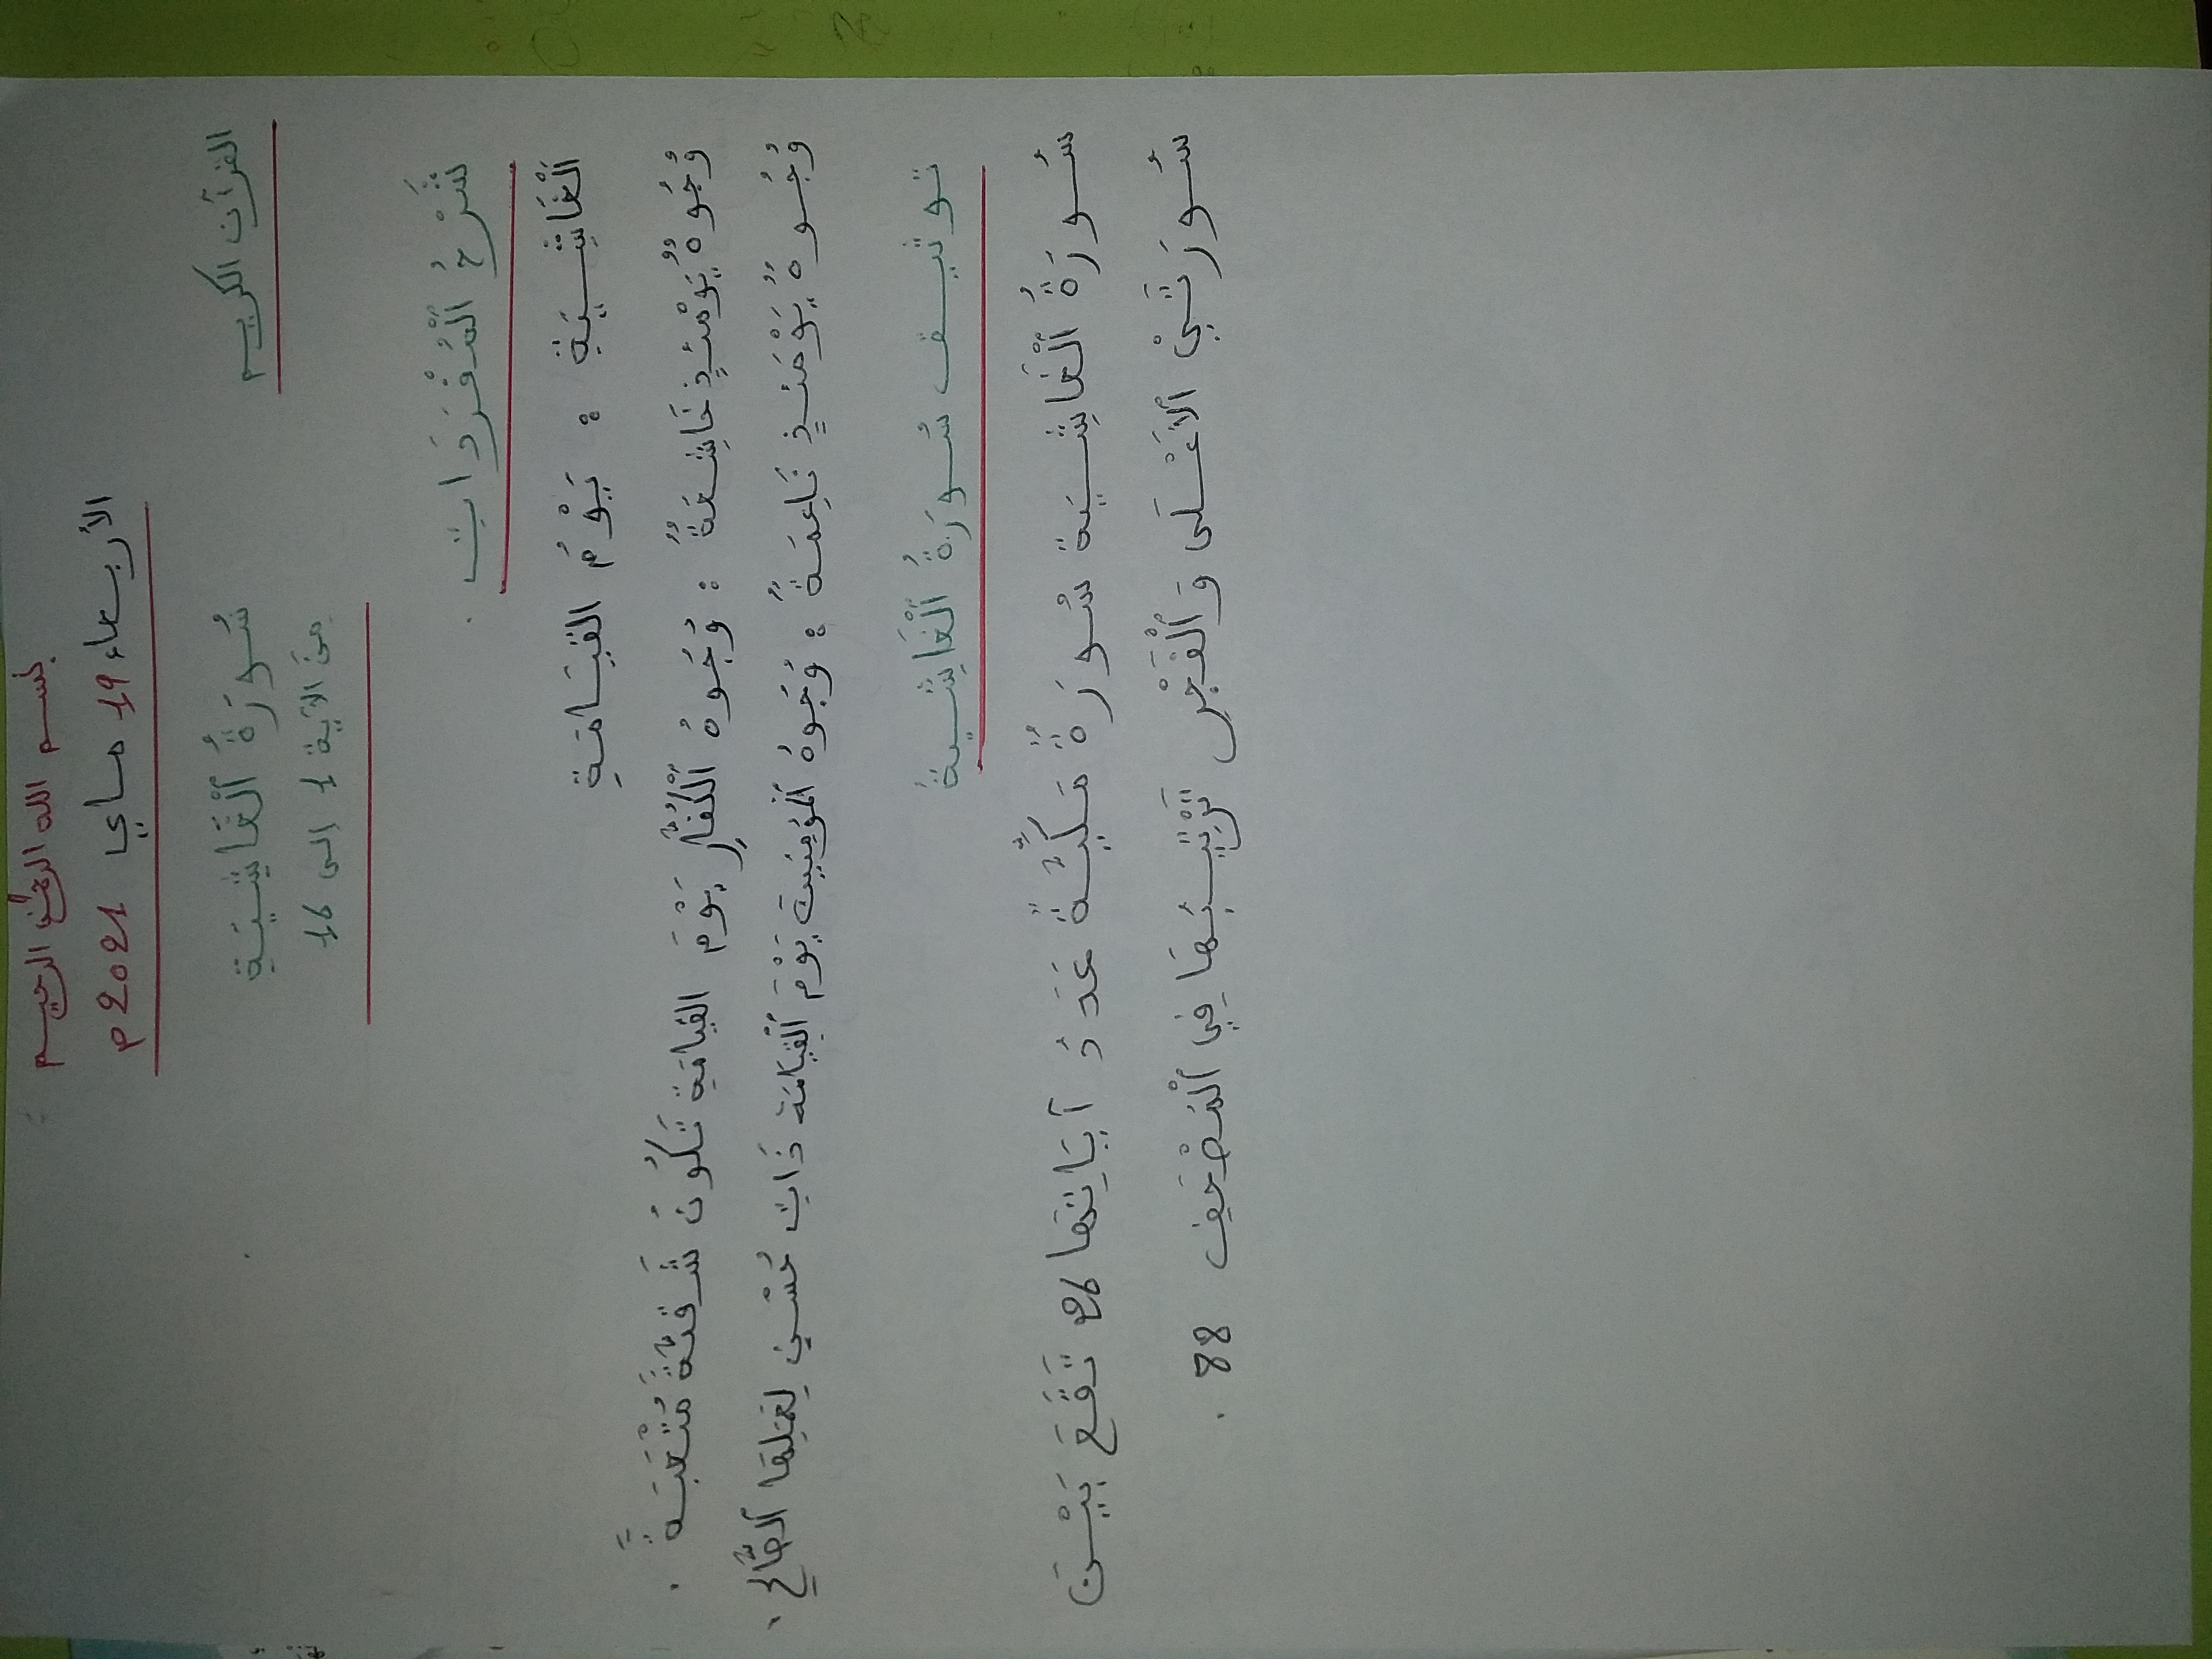 بسم الله الرحمٰن الرحيم
الأربعاء 19 ماي 2021م
القرآن الكريم
سُورَةُ ٱلْغَاشِيَةِ
مِنَ الآية 1 إلى 16
شَرْحُ ٱلْمُفْرَدَاتِ .
اَلْغَاشِيَةِ : يَوْمُ القِيَامَةِ
وُجُوهٌ يَوْمَئِذٍ خَاشِعَةٌ : وُجُوهُ ٱلْكُفَّارِ يَوْمَ القِيامَةِ تَكُونُ شَقِيَّةً مُتْعَبَةً .
وُجُوهٌ يَوْمَئِذٍ نَاعِمَةٌ : وُجُوهُ ٱلْمُؤمِنِينَ يَوْمَ ٱلْقِيَامَة ذَاتِ حُسْنٍ لِعَمَلِهَا ٱلصَّالِحِ .
توثيق سُورَةُ ٱلْغَاشِيةُ
سُورَةُ ٱلْغَاشِيَة سُورَةٌ مَكِّيَّةٌ عَدَدُ آيَاتِهَا 26 تَقَعَ بَيْنَ
سُورَتَيْ ٱلأَعْلَى وَٱلْفَجْرِ تَرْتِيبُهَا فِي ٱلْمُصْحَفِ 88 .